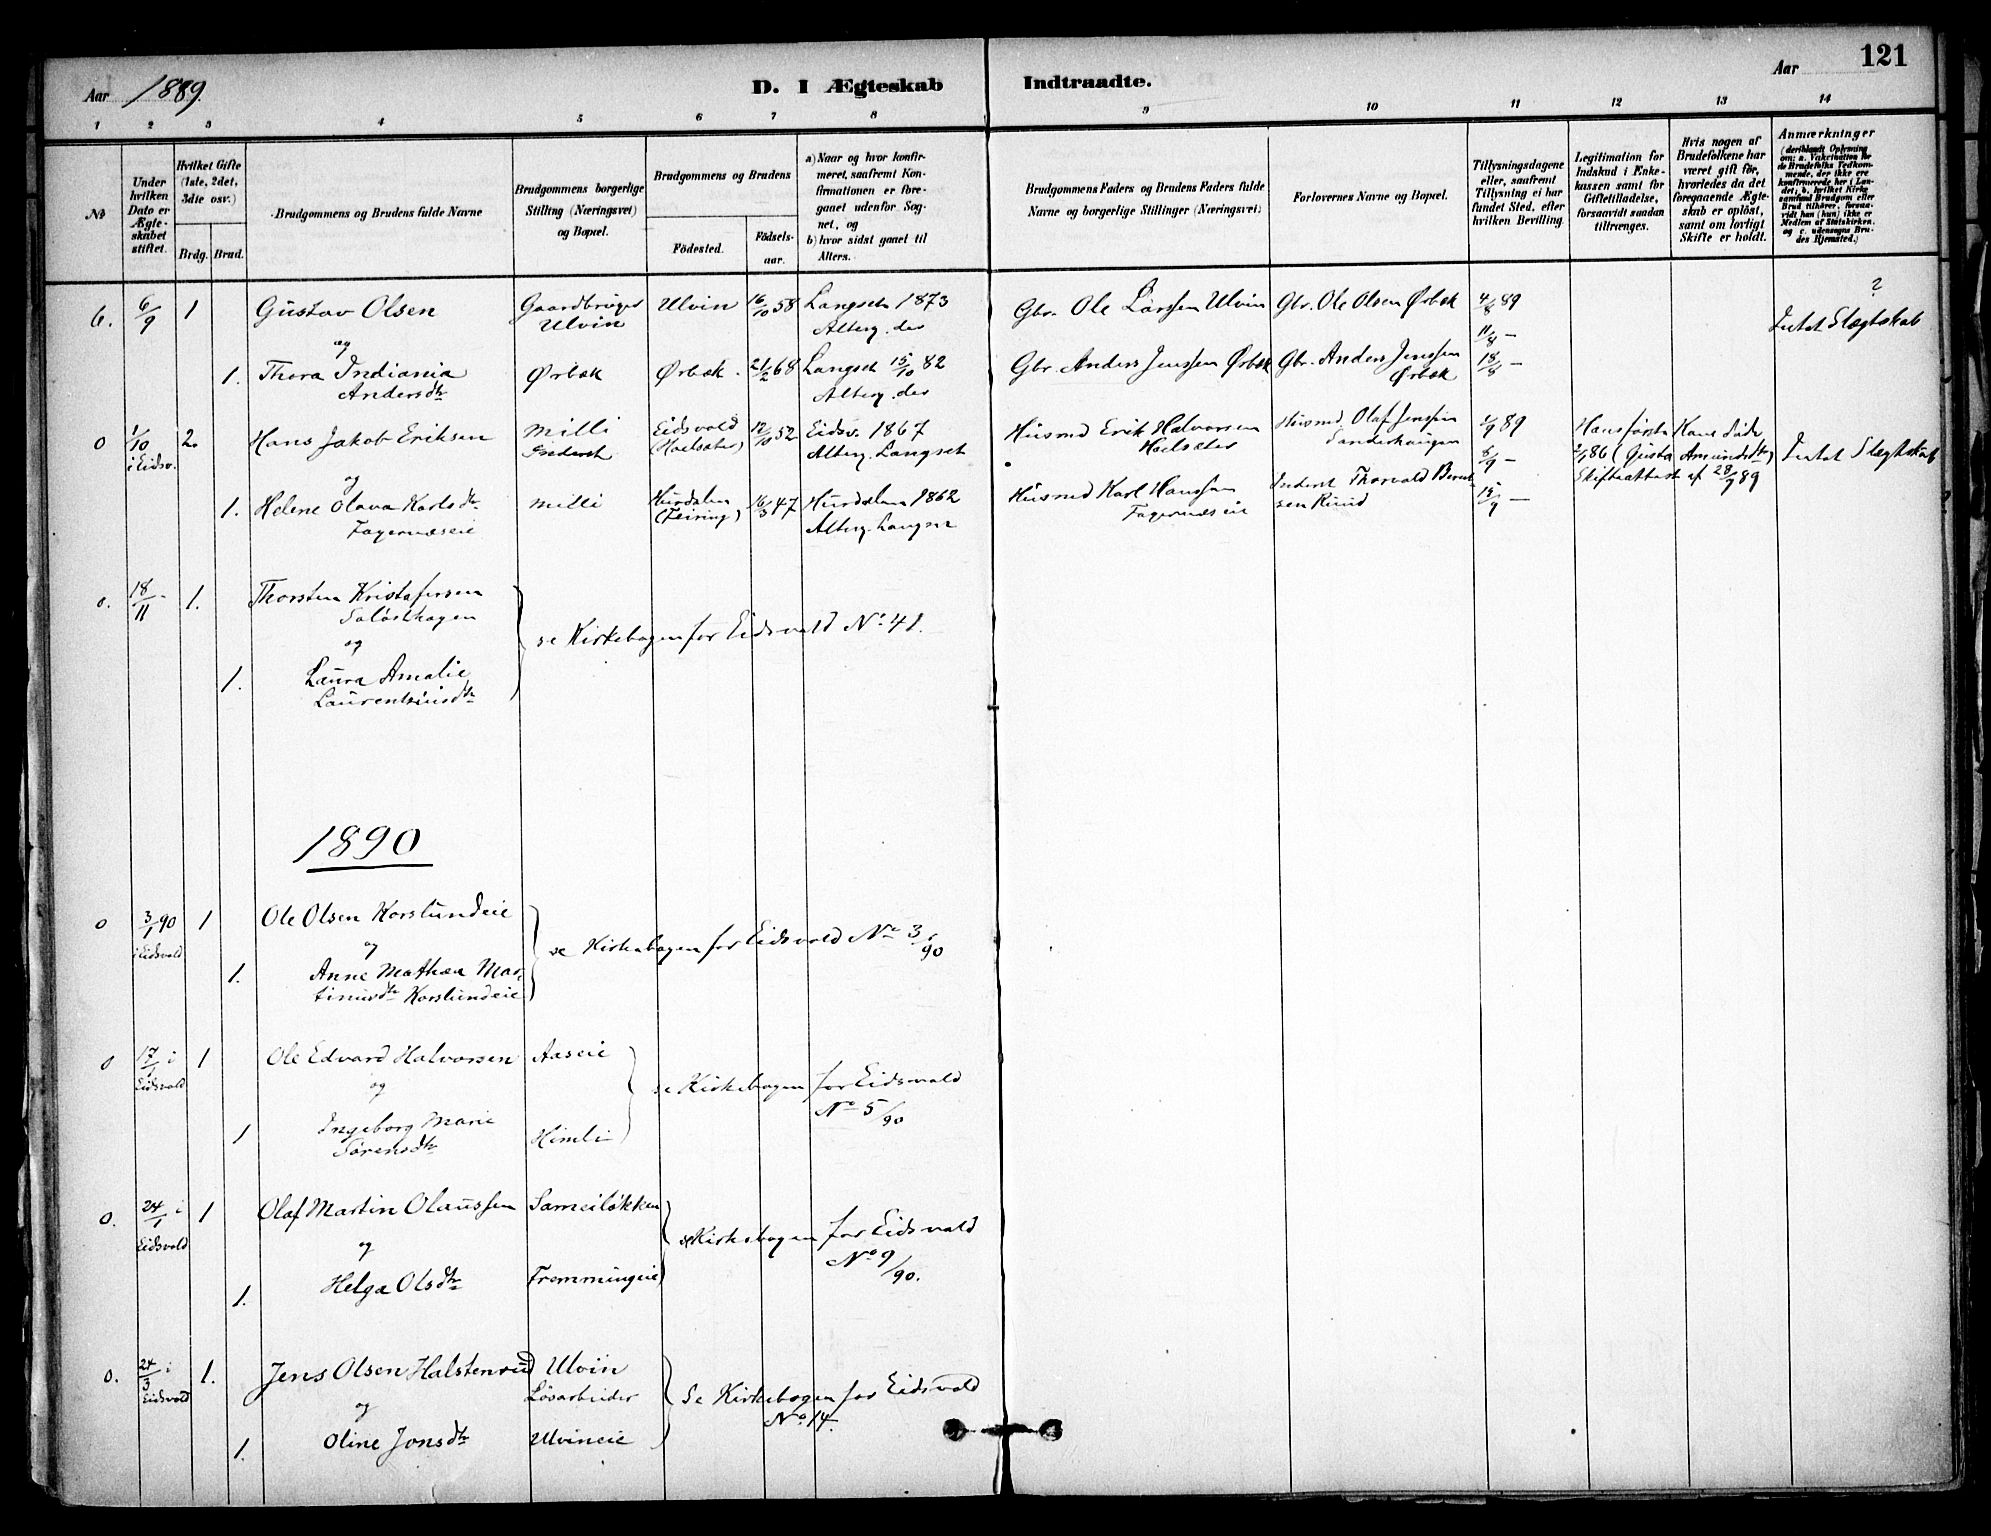 Aar 1889.
D. I Ægteskab Indtraadte.
Aar 121
1 2 3 4 5 6 7 8 9 10 11 12 13 14
No
Under hvilken Dato er Ægteskabet stiftet.
Hvilket Gifte (1ste, 2det, 3die osv.)
Brdg. Brud.
Brudgommens og Brudens fulde Navne
Brudgommens borgerlige Stilling (Næringsvei) og Bopæl.
Brudgommens og Brudens
Födested.
Födselsaar.
a) Naar og hvor konfirmeret, saafremt Konfirmationen er foregaaet udenfor Sognet, og
b) hvor sidst gaaet til Alters.
Brudgommens Faders og Brudens Faders fulde Navne og borgerlige Stillinger (Næringsvei)
Forlovernes Navne og Bopæl.
Tillysningsdagene eller, saafremt Tillysning ei har fundet Sted, efter hvilken Bevilling.
Legitimation for Indskud i Enkekassen samt for Giftetilladelse, forsaavidt saadan tiltrænges.
Hvis nogen af Brudefolkene har været gift før, hvorledes da det foregaaende Ægteskab er oplöst, samt om lovligt Skifte er holdt.
Anmærkninger
6. 6/9 1 Gustav Olsen Gaardbruger Ulvin Ulvin 16/10 58 Langset 1873 Alterg. der Gbr. Ole Larssen Ulvin Gbr. Ole Olsen Ørbæk 4/8 89 ?
og 11/8 — Intet Slægtskab
1. Thora Indiania Andersdtr Ørbæk Ørbæk. 21/2 68 Langset 15/10 82 Alterg. der Gbr. Anders Jenssen Ørbæk Gbr. Anders Jenssen Ørbæk 18/8 —
0 1/10 i Eidsv. 2. Hans Jakob Eriksen Milli Eidsvold (Hoelsæter) 12/10 52 Eidsv. 1867 Alterg. Langset Husmd Erik Halvorsen Hoelsæter Husmd. Olaf Jenssen 1/9 89 Hans første Kone døde 2/1 86 (Gusta Amundsdtr) Skifteattest af 28/9 89 Intet Slægtskab
og 8/9 —
1. Helene Olava Karlsdtr Fagernæseie Milli Hurdalen (Feiring) 16/3 47 Hurdalen 1862 Alterg. Langset Husmd Karl Hanssen Fagernæseie Inderst Thorvald Berntsen Ruud 15/9 —
0. 18/11 1. Thorsten Kristofersen
og
1. Laura Amalie
se Kirkebogen for Eidsvold No. 41.
1890
0 3/1 90 i Eidsvold 1 Ole Olsen Korslundeie
og
1. Anne Mathea Martinusdtr Korslundeie
se Kirkebogen for Eidsvold No 3/90
0 17/1 i Eidsvold 1 Ole Edvard Halvorsen Aaseie
og
1 Ingeborg Marie Sørensdtr Himli
se Kirkebogen for Eidsvold
No 5/90
0. 24/1 i Eidsvold 1 Olaf Martin Olaussen Sameiløkken
og
1. Helga Olsdtr Fremmingeie
se Kirkebogen for Eidsvold
No 9/90.
0. 24/3 i Eidsvold 1. Jens Olsen Halstenrud Ulvin
Løsarbeider
og
1. Oline Jonsdtr Ulvineie
Se Kirkebogen for Eidsvold
No 14.